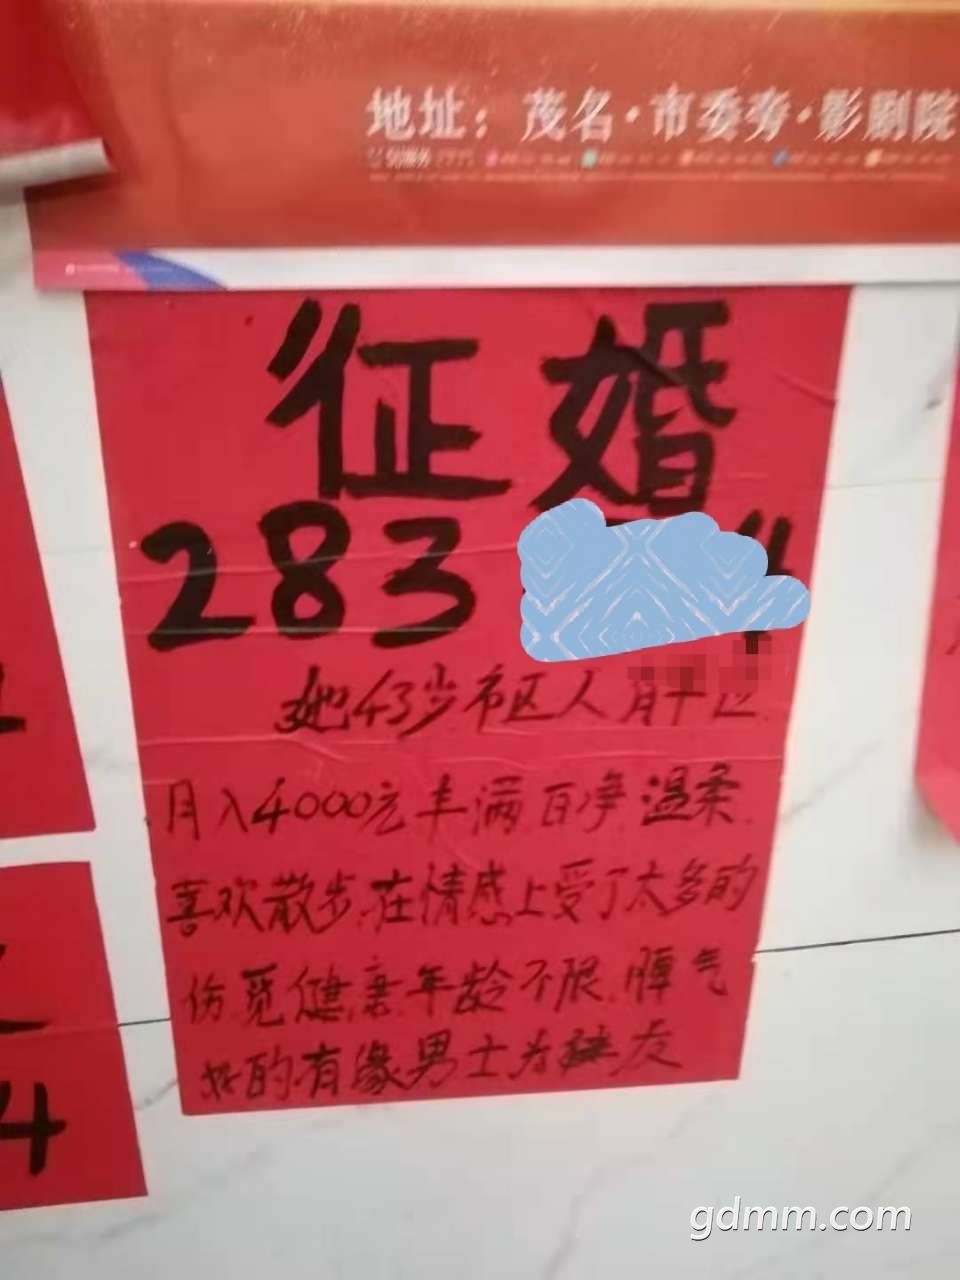 地址：茂名·市委旁·影剧院
征婚
283
她43岁市区人有
月入4000元丰满白净温柔
喜欢散步.在情感上受了太多的
伤觅健康.年龄不限.脾气
好的.有缘男士为
友
4
gdmm.com